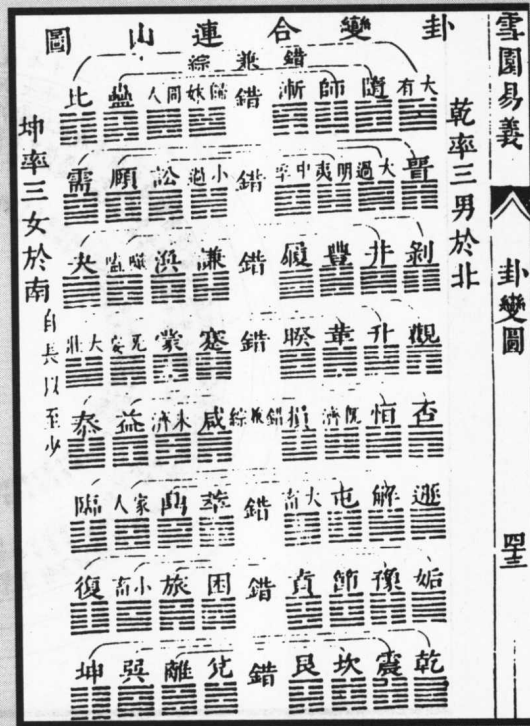 雪園易義
卦變圖
四十三
卦變合連山圖
乾率三男於北
錯兼綜
大有 隨 師 漸 錯 歸妹 同人 蠱 比
晉 大過 明夷 中孚 錯 小過 訟 頤 需
剝 井 豐 履 錯 謙 渙 噬嗑 夬
觀 升 革 睽 錯 蹇 蒙 无妄 大壯
否 恒 既濟 損 錯兼綜 咸 未濟 益 泰
遯 解 屯 大畜 錯 萃 鼎 家人 臨
姤 豫 節 賁 錯 困 旅 小畜 復
乾 震 坎 艮 錯 兌 離 巽 坤
坤率三女於南
自長以至少